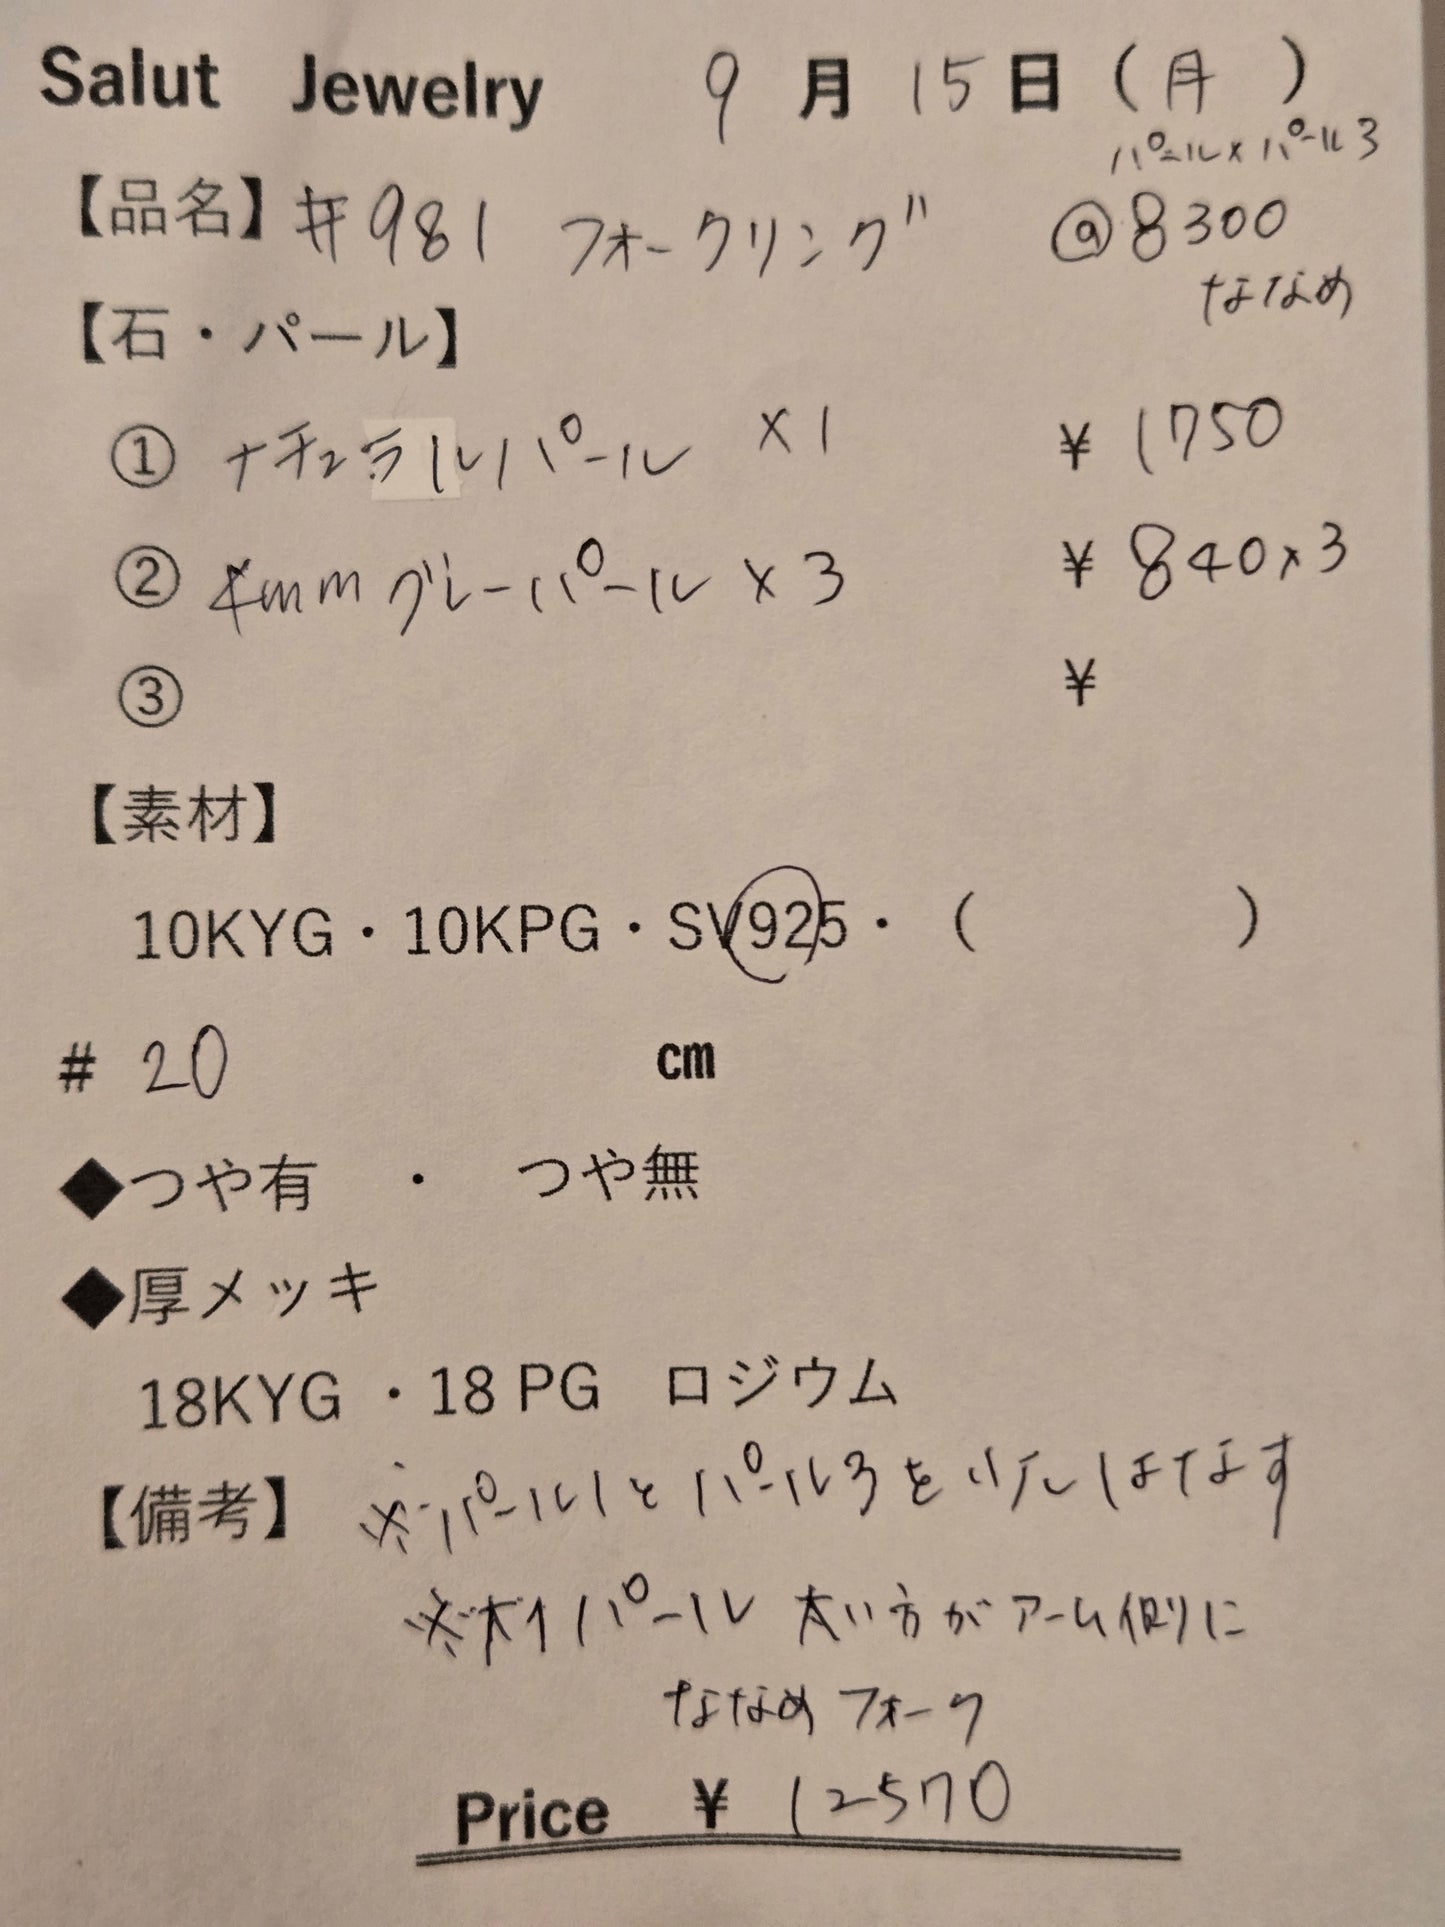 Salut Jewelry 9月15日(月)
パール×パール3
【品名】#981 フォークリング @8300
ななめ
【石・パール】
① ナチュラルパール ×1 ¥1750
② 4mmグレーパール×3 ¥840×3
③ ¥
【素材】
10KYG・10KPG・SV925・( )
# 20 cm
◆つや有 ・ つや無
◆厚メッキ
18KYG ・18 PG ロジウム
【備考】 ※パール1とパール3を少しはなす
※ パール 太い方がアーム側に
ななめフォーク
Price ¥ 12570